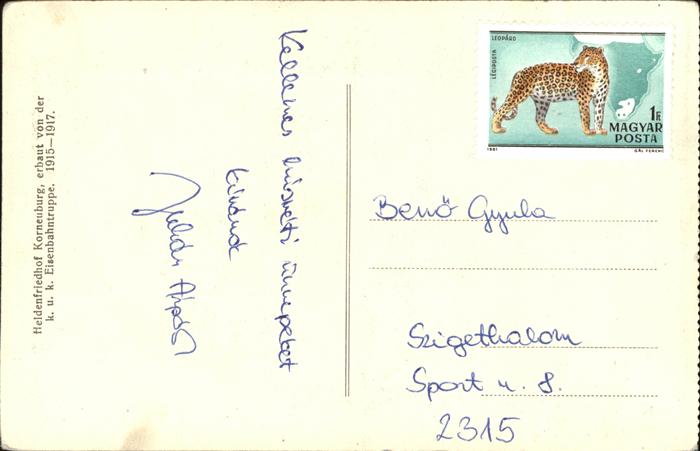 Heldenfriedhof Korneuburg, erbaut von der
k. u. k. Eisenbahntruppe. 1915—1917.
Kellemes húsvéti ünnepeket
kívánok
Juhász Árpád
LEOPÁRD
LÉGIPOSTA
1Ft
MAGYAR
POSTA
1981
GÁL FERENC
Benő Gyula
Szigethalom
Sport u. 8.
2315